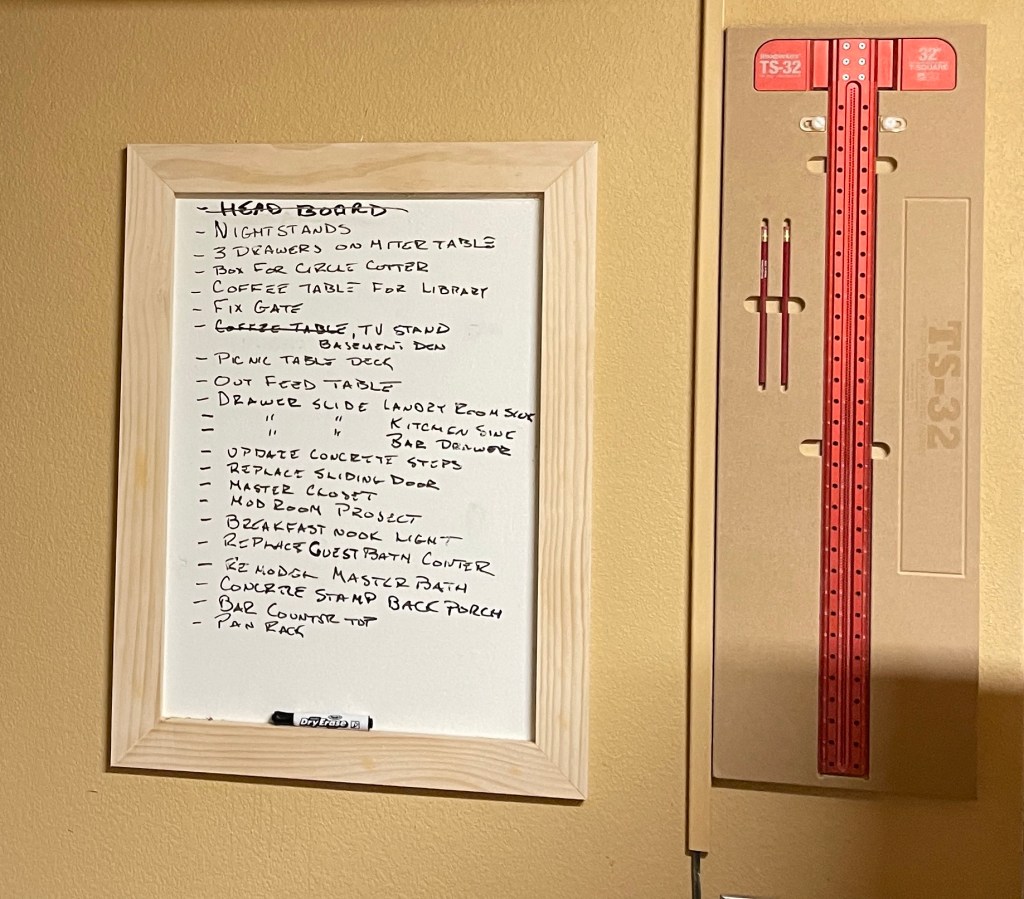 - HEAD BOARD
- NIGHTSTANDS
- 3 DRAWERS ON MITER TABLE
- BOX FOR CIRCLE CUTTER
- COFFEE TABLE FOR LIBRARY
- FIX GATE
- COFFEE TABLE, TV STAND
BASEMENT DEN
- PICNIC TABLE DECK
- OUT FEED TABLE
- DRAWER SLIDE LANDRY ROOM SINK
- " " KITCHEN SINK
- " " BAR DRAWER
- UPDATE CONCRETE STEPS
- REPLACE SLIDING DOOR
- MASTER CLOSET
- MUD ROOM PROJECT
- BREAKFAST NOOK LIGHT
- REPLACE GUEST BATH CONTER
- REMODEL MASTER BATH
- CONCRETE STAMP BACK PORCH
- BAR COUNTER TOP
- PAN RACK
Dry Erase
TS-32
32"
T-SQUARE
TS-32